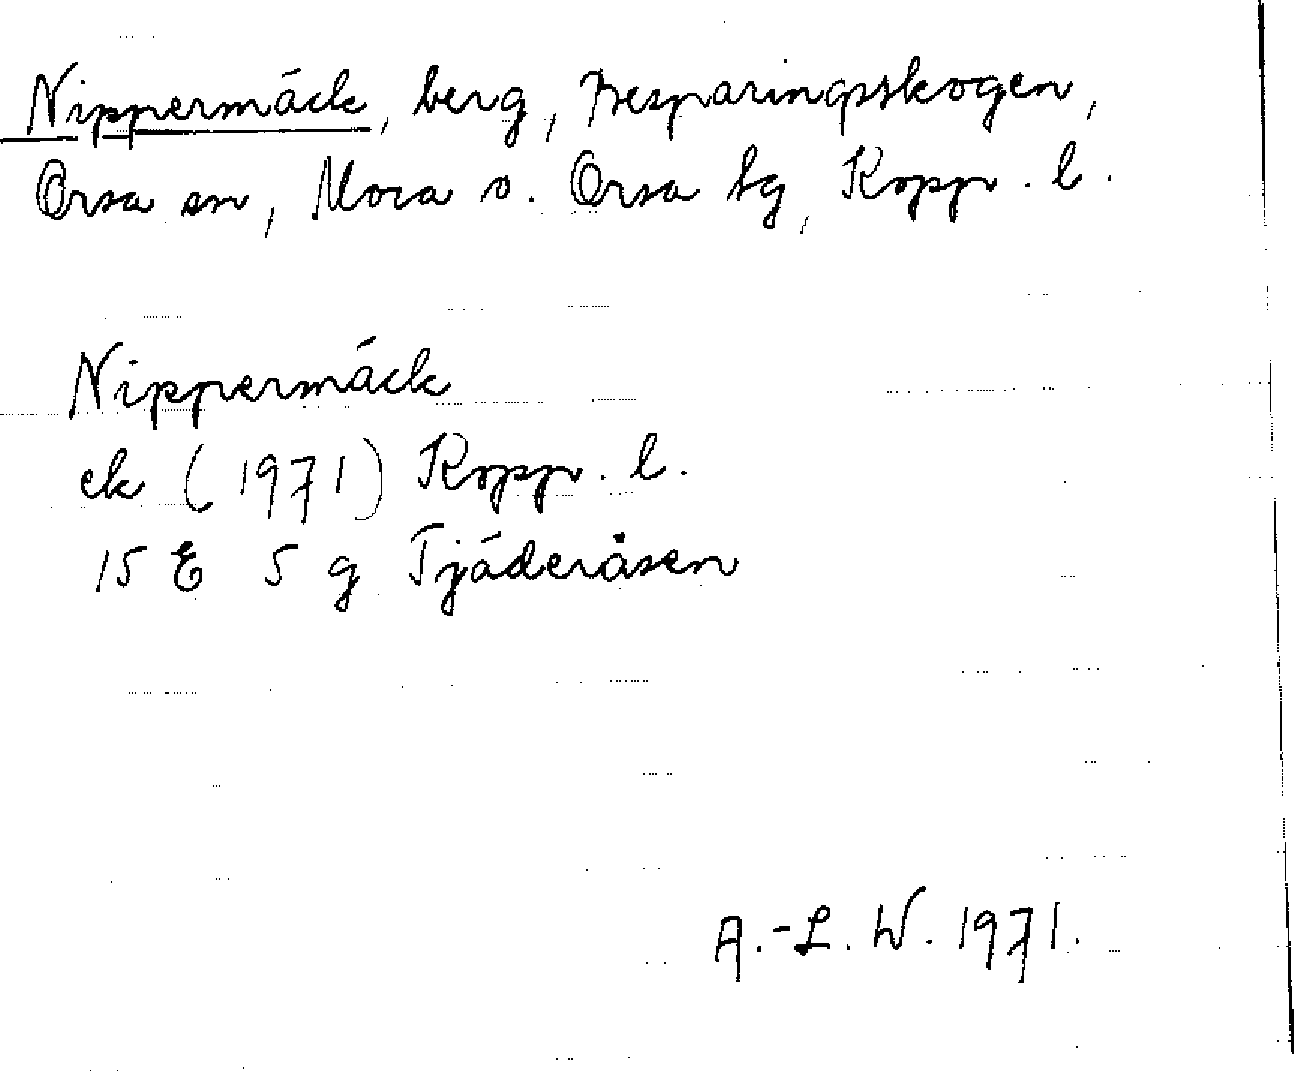 Nippermäck, berg, Besparingsskogen,
Orsa sn, Mora o. Orsa tg, Kopp. l.
Nippermäck
ek (1971) Kopp. l.
15 E 5 g Tjäderåsen
A.-L. W. 1971.